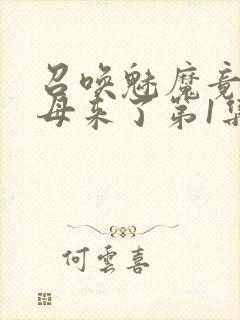 召唤魅魔竟
母来了第1集
何雲喜